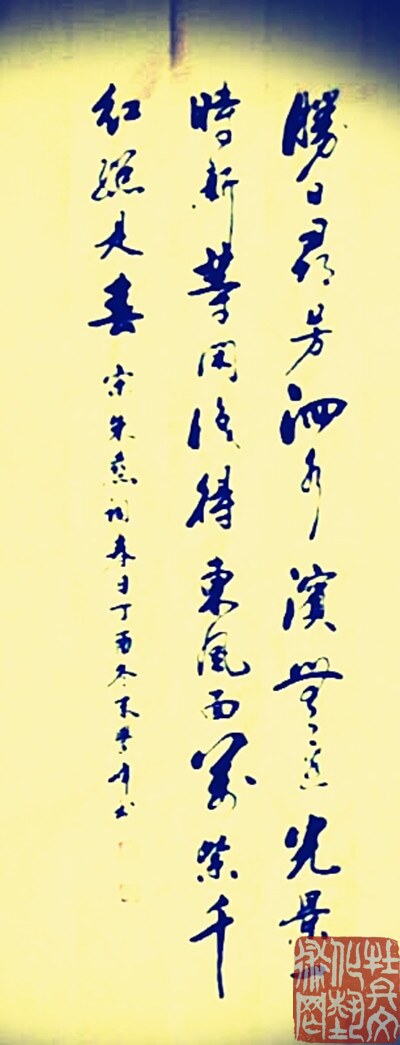 勝日尋芳泗水濱無邊光景一
時新等閒識得東風面萬紫千
紅總是春 宋朱熹詞春日丁酉冬末書